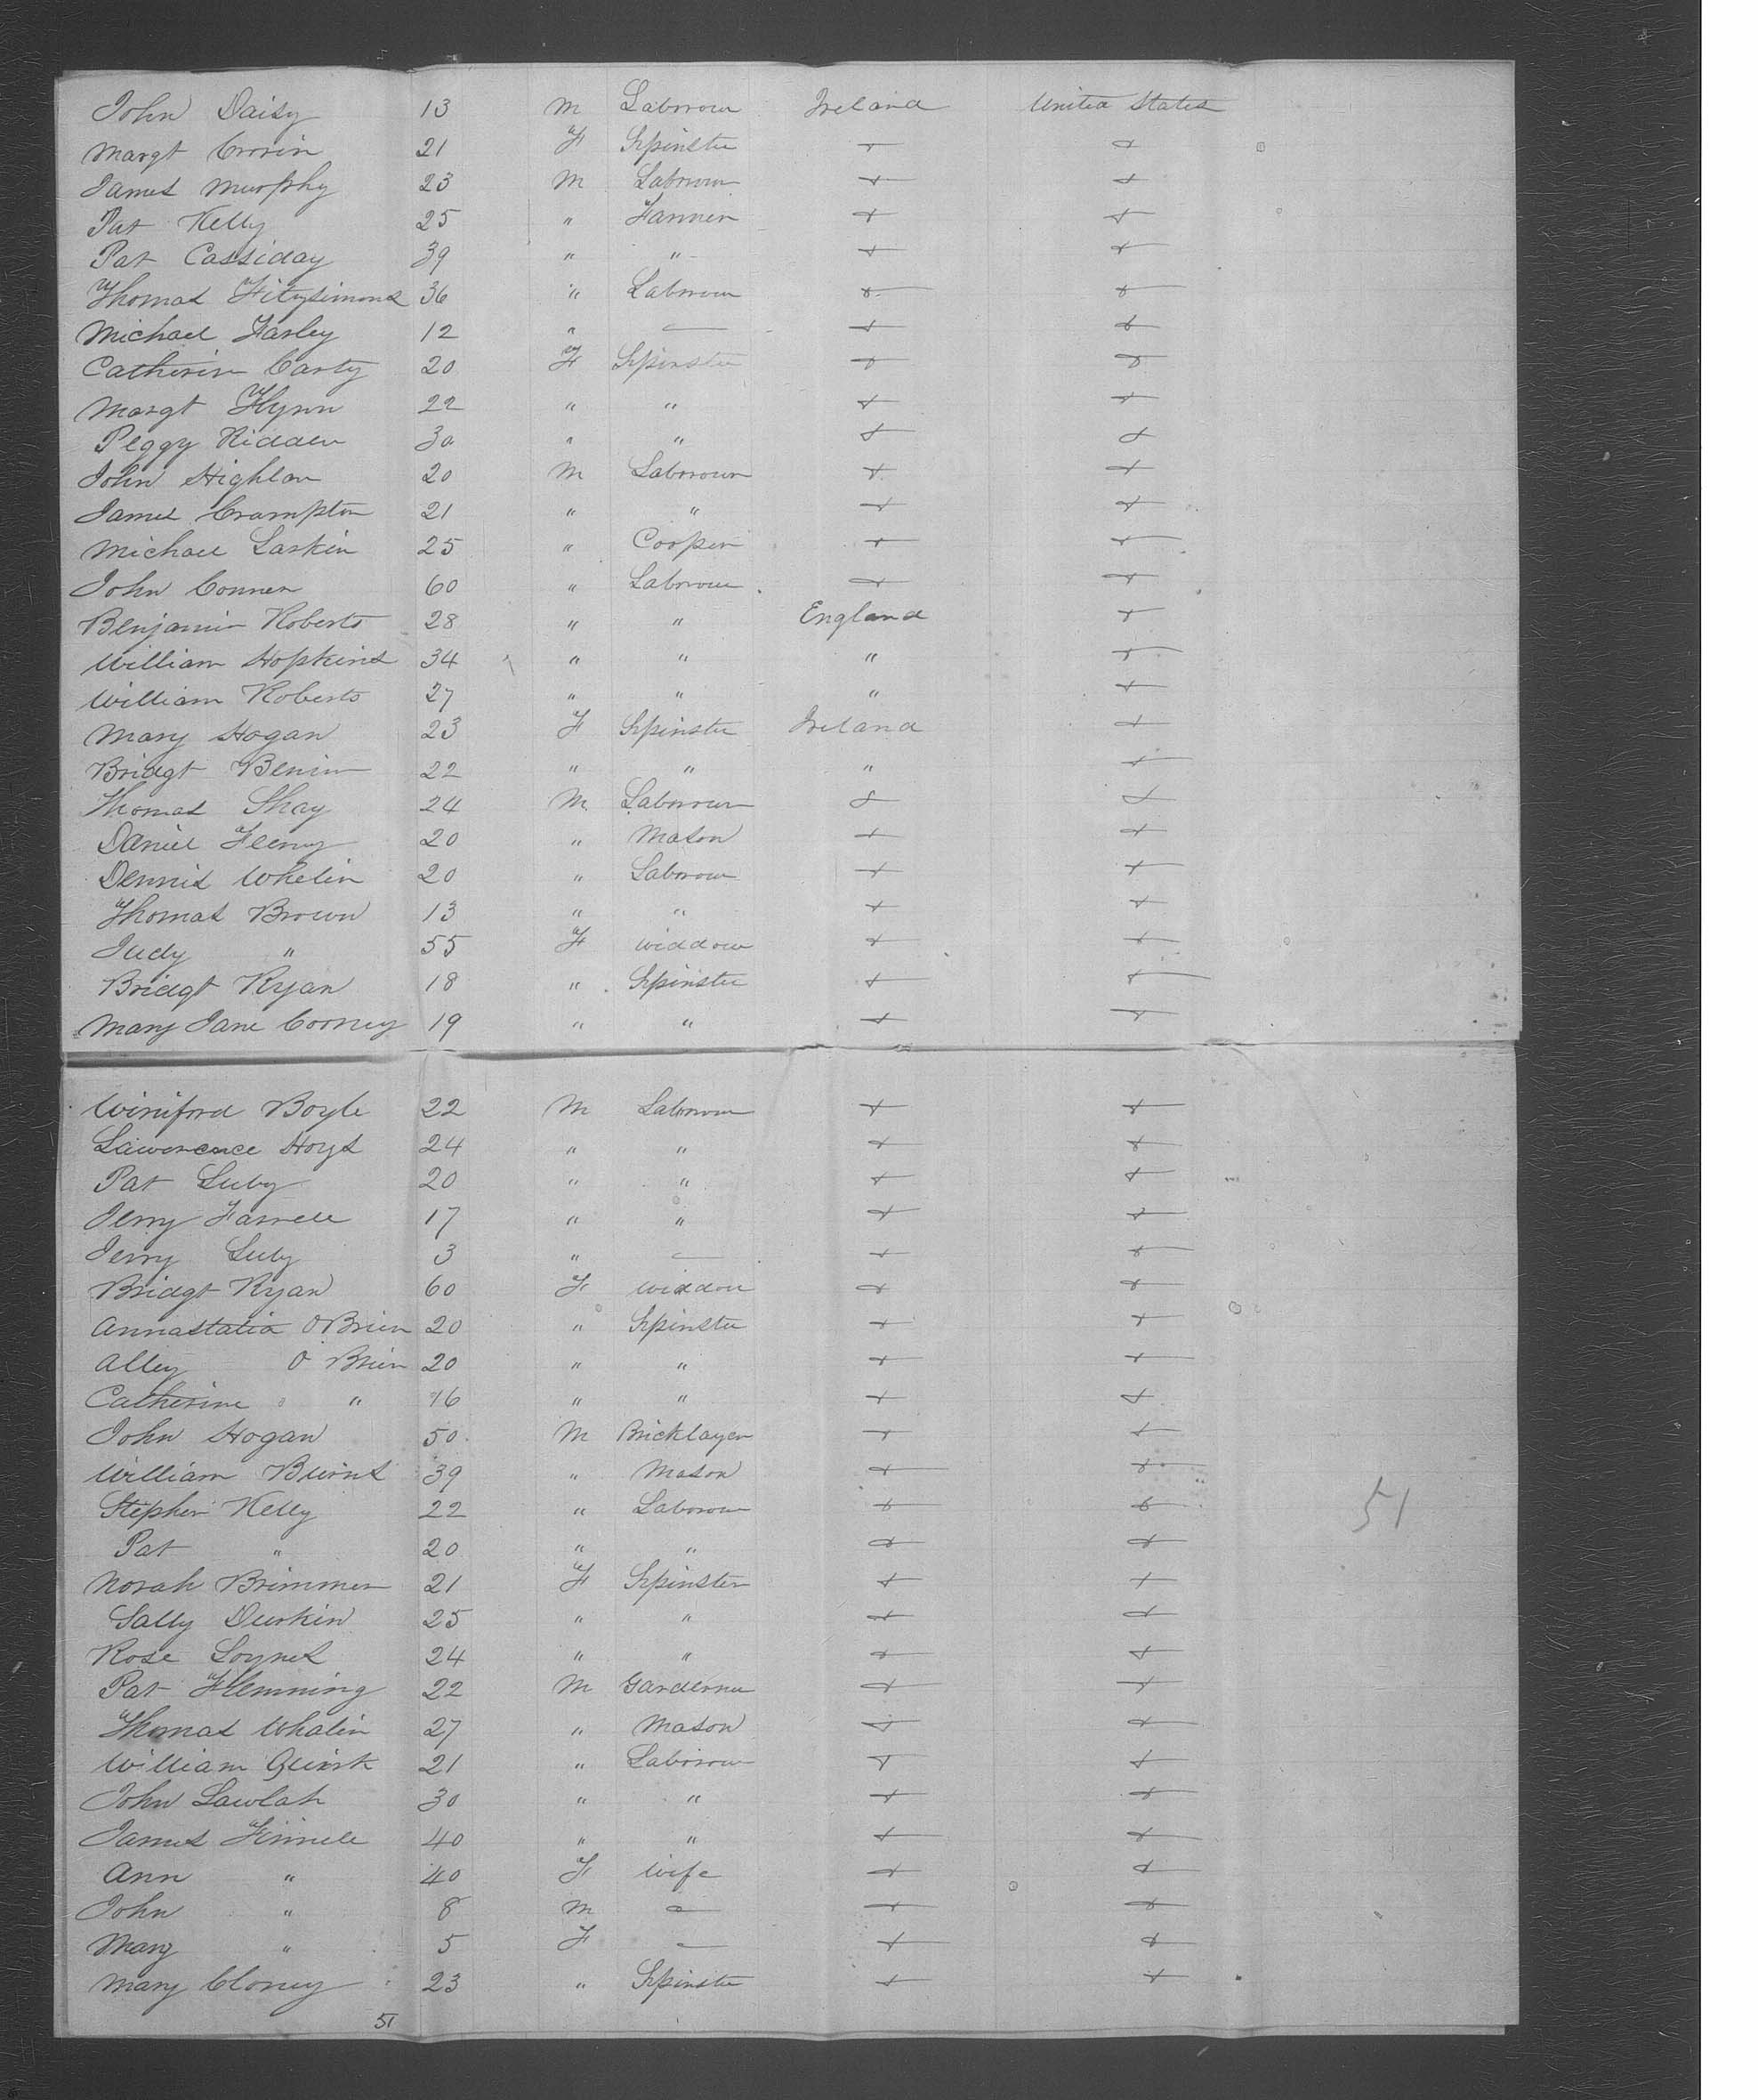 John Daisy 13 M Laborour Ireland United States
Margt Cronin 21 F Spinster + +
James Murphy 23 M Laborour + +
Pat Kelly 25 " Farmer + +
Pat Cassiday 39 " " + +
Thomas Fitzsimons 36 " Laborour + +
Michael Farley 12 " — + +
Catherin Carty 20 F Spinster + +
Margt Flynn 22 " " + +
Peggy Kidden 30 " " + +
John Highlan 20 M Laborour + +
James Crampton 21 " " + +
Michael Larkin 25 " Cooper + +
John Conner 60 " Laborour + +
Benjamin Roberts 28 " " England +
William Hopkins 34 " " " +
William Roberts 27 " " " +
Mary Hogan 23 F Spinster Ireland +
Bridgt Benin 22 " " " +
Thomas Shay 24 M Laborour + +
Daniel 20 " Mason + +
Dennis Whelin 20 " Laborour + +
Thomas Brown 13 " " + +
Judy " 55 F widdow + +
Bridgt Ryan 18 " Spinster + +
Mary Jane Cooney 19 " " + +
Winiford Boyle 22 M Laborour + +
Lawerence Hoys 24 " " + +
Pat Luby 20 " " + +
Jerry Farrell 17 " " + +
Jerry Luby 3 " — + +
Bridgt Ryan 60 F widdow + +
Annastatia O Brien 20 " Spinster + +
Alley O Brien 20 " " + +
Catherine " 16 " " + +
John Hogan 50 M Bricklayer + +
William Burns 39 " Mason + +
Stephen Kelly 22 " Laborour + +
Pat " 20 " " + +
Norah Brimmer 21 F Spinster + +
Sally Durkin 25 " " + +
Rose Loynes 24 " " + +
Pat Flemming 22 M Garderner + +
Thomas Whalin 27 " Mason + +
William Quirk 21 " Laborour + +
John Lawlah 30 " " + +
James Finnell 40 " " + +
Ann " 40 F Wife + +
John " 8 M — + +
Mary " 5 F — + +
Mary Cloney 23 " Spinster + +
51
51